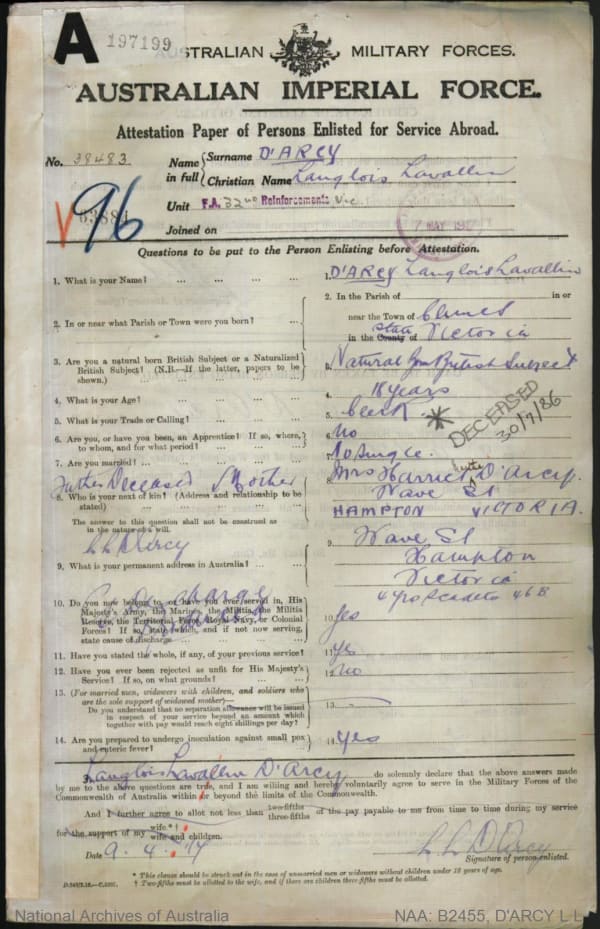 A
197199
AUSTRALIAN MILITARY FORCES.
AUSTRALIAN IMPERIAL FORCE.
Attestation Paper of Persons Enlisted for Service Abroad.
No. 38483
Name in full { Surname D'ARCY
Christian Name Langlois Lavallin
96
Unit F.A. 32nd Reinforcements Vic
Joined on
7 MAY
Questions to be put to the Person Enlisting before Attestation.
1. What is your Name? ... ... ... ... 1. D'ARCY Langlois Lavallin
2. In or near what Parish or Town were you born? ... 2. In the Parish of in or
near the Town of Clunes
in the County of State Victoria
3. Are you a natural born British Subject or a Naturalized
British Subject? (N.B.—If the latter, papers to be
shown.) 3. Natural Born British Subject
4. What is your Age? 4. 18 years
5. What is your Trade or Calling? 5. Clerk
* DECEASED 30/7/86
6. Are you, or have you been, an Apprentice? If so, where,
to whom, and for what period? 6. No
7. Are you married? 7. Single
Father Deceased Mother
8. Who is your next of kin? (Address and relationship to be
stated) 8. Mrs Harriet D'Arcy
Wave St
HAMPTON VICTORIA.
The answer to this question shall not be construed as
in the nature of a will.
L L D'Arcy
9. What is your permanent address in Australia? 9. Wave St
Hampton
Victoria
4 yrs Scadets 46B
10. Do you now belong to, or have you ever served in, His
Majesty's Army, the Marines, the Militia, the Militia
Reserve, the Territorial Force, Royal Navy, or Colonial
Forces? If so, state which, and if not now serving,
state cause of discharge 10. Yes
11. Have you stated the whole, if any, of your previous service? 11. Yes
12. Have you ever been rejected as unfit for His Majesty's
Service? If so, on what grounds? 12. No
13. (For married men, widowers with children, and soldiers who
are the sole support of widowed mother)—
Do you understand that no separation allowance will be issued
in respect of your service beyond an amount which
together with pay would reach eight shillings per day? 13.
14. Are you prepared to undergo inoculation against small pox
and enteric fever? 14. Yes
I, Langlois Lavallin D'Arcy do solemnly declare that the above answers made
by me to the above questions are true, and I am willing and hereby voluntarily agree to serve in the Military Forces of the
Commonwealth of Australia within or beyond the limits of the Commonwealth.
And I further agree to allot not less than two-fifths three-fifths of the pay payable to me from time to time during my service
for the support of my wife*† wife and children.
Date 9.4.17
L L D'Arcy
Signature of person enlisted.
* This clause should be struck out in the case of unmarried men or widowers without children under 18 years of age.
† Two-fifths must be allotted to the wife, and if there are children three-fifths must be allotted.
National Archives of Australia NAA: B2455, D'ARCY L L